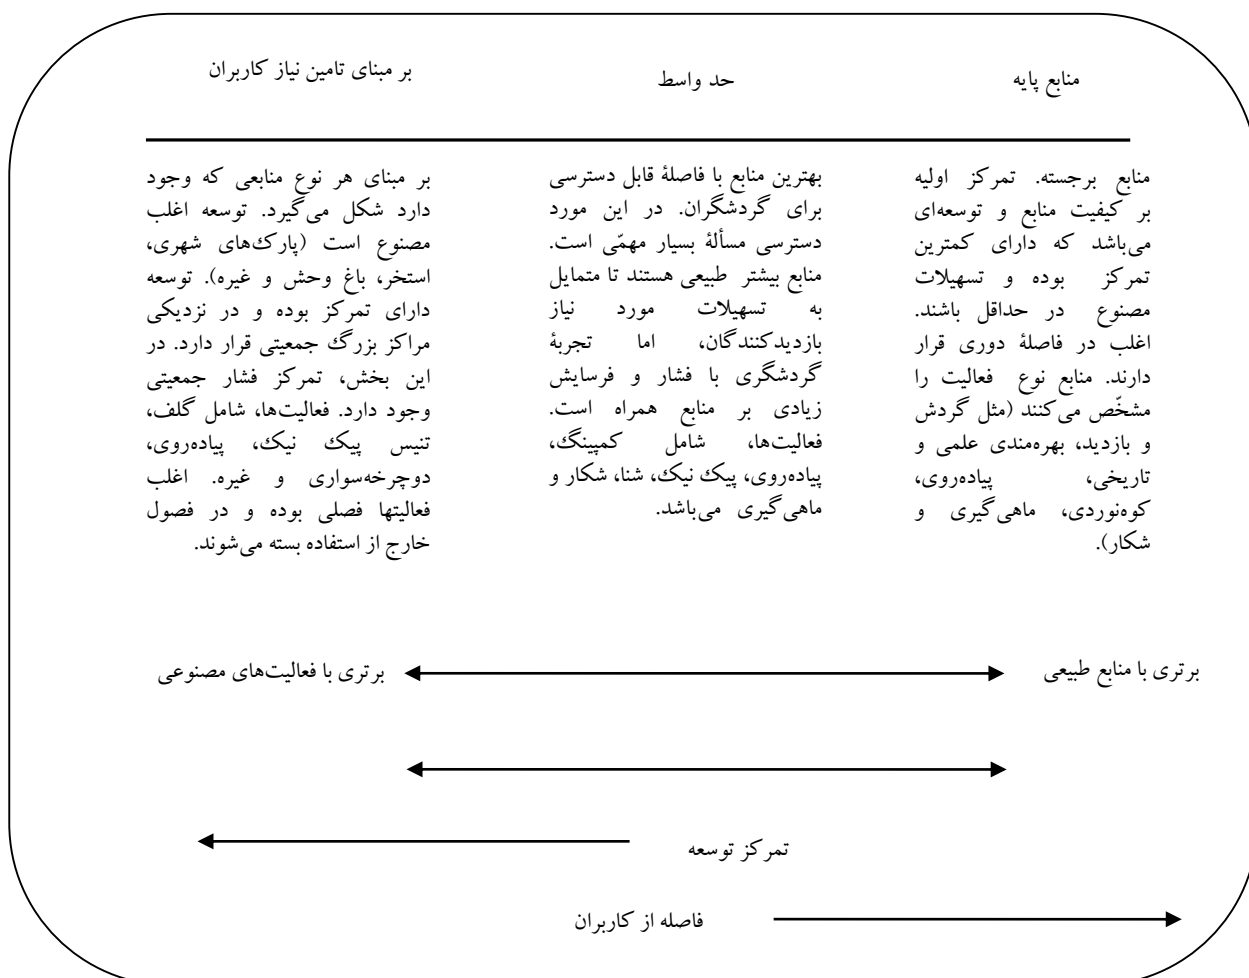 منابع پایه
حد واسط
بر مبنای تامین نیاز کاربران
منابع برجسته. تمرکز اولیه
بر کیفیت منابع و توسعه‌ای
می‌باشد که دارای کمترین
تمرکز بوده و تسهیلات
مصنوع در حداقل باشند.
اغلب در فاصلهٔ دوری قرار
دارند. منابع نوع فعالیت را
مشخّص می‌کنند (مثل گردش
و بازدید، بهره‌مندی علمی و
تاریخی، پیاده‌روی،
کوه‌نوردی، ماهی‌گیری و
شکار).
بهترین منابع با فاصلهٔ قابل دسترسی
برای گردشگران. در این مورد
دسترسی مسألهٔ بسیار مهمّی است.
منابع بیشتر طبیعی هستند تا متمایل
به تسهیلات مورد نیاز
بازدیدکنندگان، اما تجربهٔ
گردشگری با فشار و فرسایش
زیادی بر منابع همراه است.
فعالیت‌ها، شامل کمپینگ،
پیاده‌روی، پیک نیک، شنا، شکار و
ماهی‌گیری می‌باشد.
بر مبنای هر نوع منابعی که وجود
دارد شکل می‌گیرد. توسعه اغلب
مصنوع است (پارک‌های شهری،
استخر، باغ وحش و غیره). توسعه
دارای تمرکز بوده و در نزدیکی
مراکز بزرگ جمعیتی قرار دارد. در
این بخش، تمرکز فشار جمعیتی
وجود دارد. فعالیت‌ها، شامل گلف،
تنیس پیک نیک، پیاده‌روی،
دوچرخه‌سواری و غیره. اغلب
فعالیتها فصلی بوده و در فصول
خارج از استفاده بسته می‌شوند.
برتری با منابع طبیعی
برتری با فعالیت‌های مصنوعی
تمرکز توسعه
فاصله از کاربران